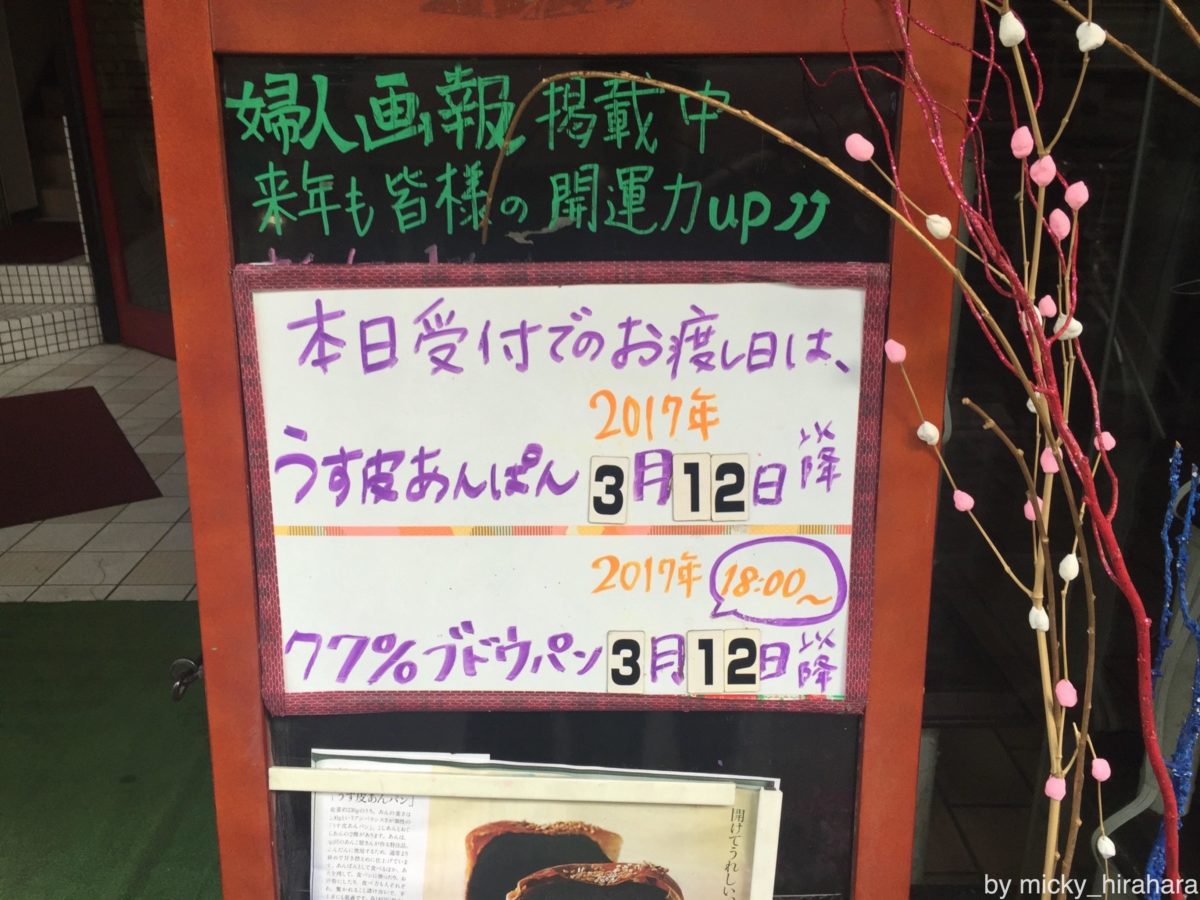 婦人画報 掲載中
来年も皆様の開運力up♪♪
本日受付でのお渡し日は、
2017年
うす皮あんぱん3月12日以降
2017年 18:00~
77%ブドウパン3月12日以降
「うす皮あんパン」
開けてうれしい、
by micky_hirahara